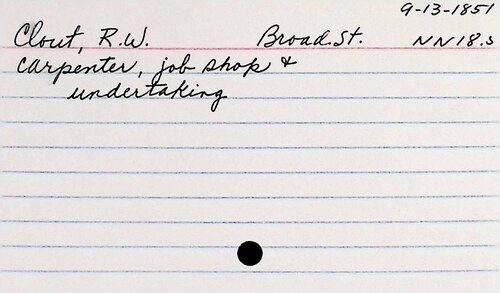 9-13-1851
Clout, R.W. Broad St. NN18.3
carpenter, job shop &
undertaking